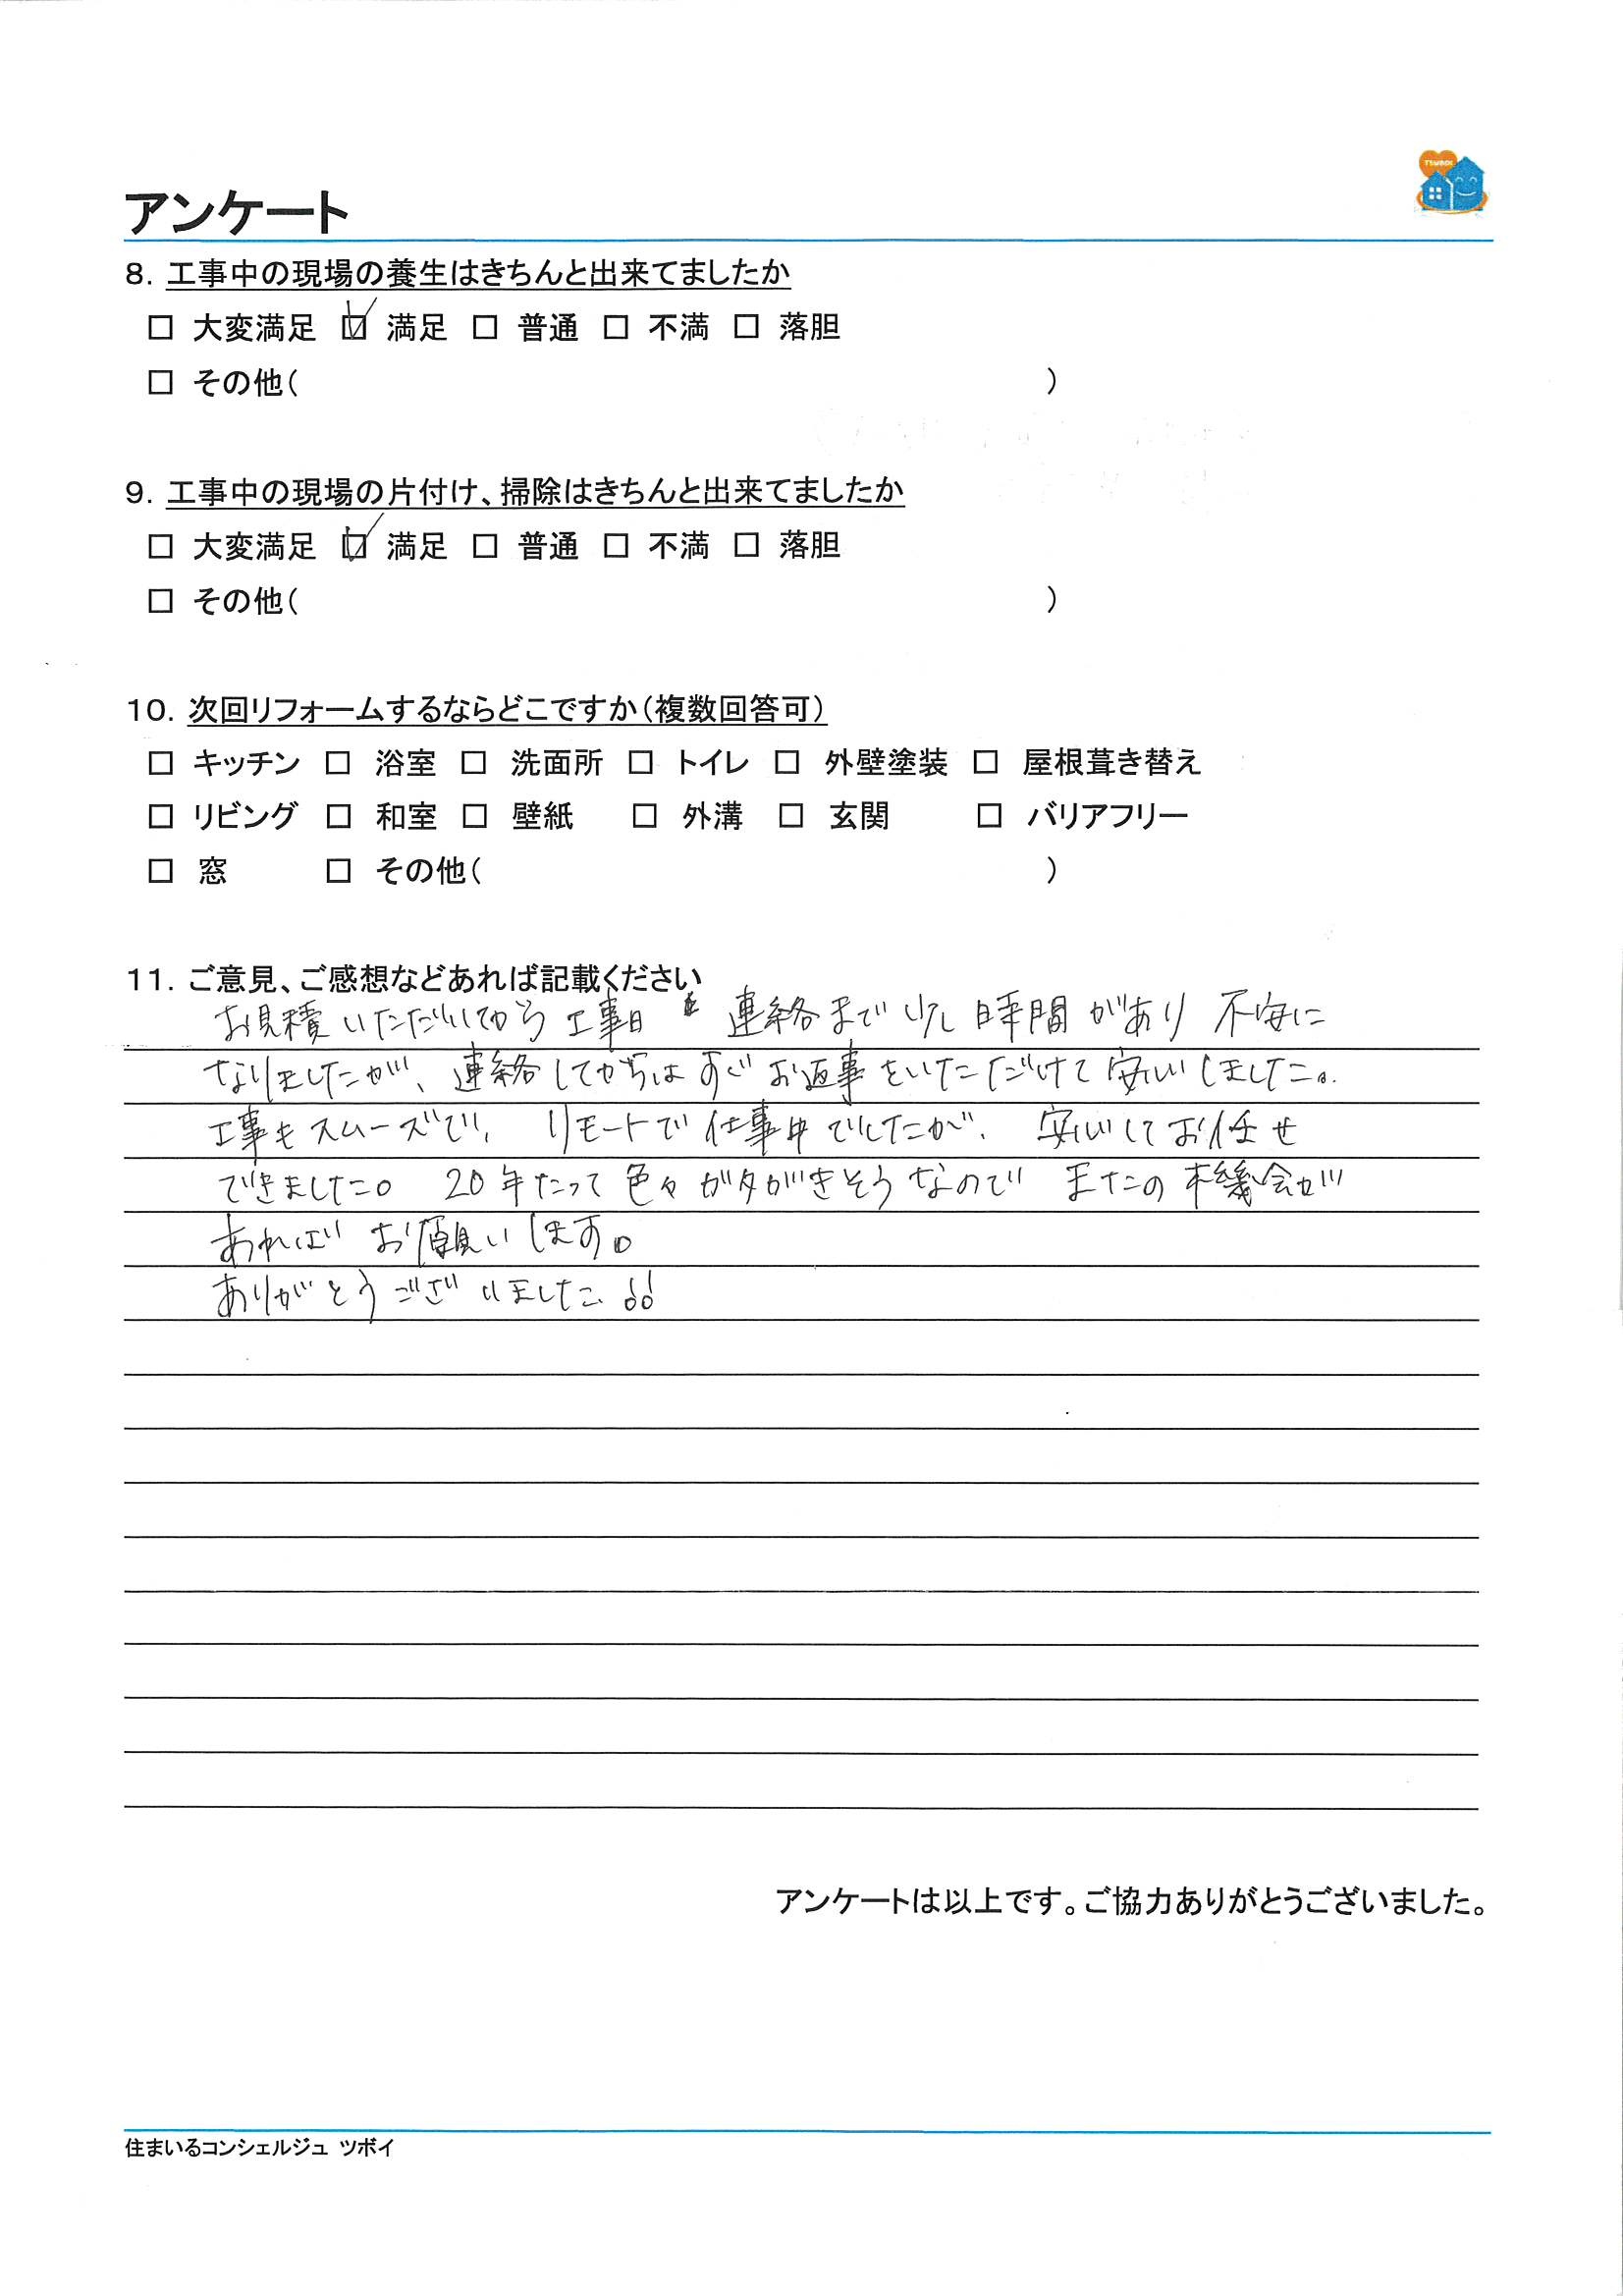 TSUBOI
アンケート
8. 工事中の現場の養生はきちんと出来てましたか
□ 大変満足 ☑ 満足 □ 普通 □ 不満 □ 落胆
□ その他( )
9. 工事中の現場の片付け、掃除はきちんと出来てましたか
□ 大変満足 ☑ 満足 □ 普通 □ 不満 □ 落胆
□ その他( )
10. 次回リフォームするならどこですか(複数回答可)
□ キッチン □ 浴室 □ 洗面所 □ トイレ □ 外壁塗装 □ 屋根葺き替え
□ リビング □ 和室 □ 壁紙 □ 外溝 □ 玄関 □ バリアフリー
□ 窓 □ その他( )
11. ご意見、ご感想などあれば記載ください
お見積いただいてから 工事日 連絡まで 少し 時間 があり 不安に
なりましたが、連絡してからは すぐ お返事をいただけて 安心しました。
工事もスムーズで、リモートで 仕事中 でしたが、安心して お任せ
できました。 20年たって 色々 ガタがきそうなので またの 機会が
あれば お願いします。
ありがとうございました!!
アンケートは以上です。ご協力ありがとうございました。
住まいるコンシェルジュ ツボイ